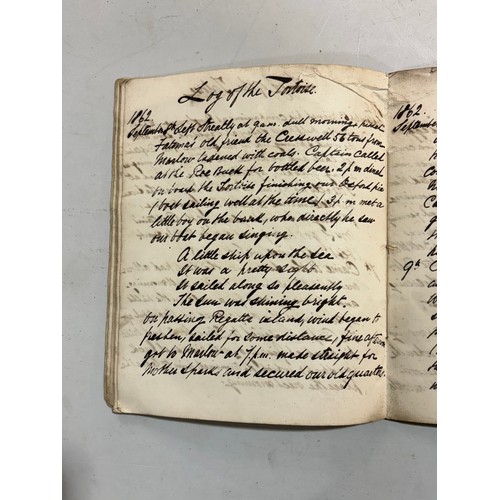 Log of the Tortoise.
1862
September 8th Left Streatly at 9 a.m. dull morning,
old friend the Cresswell 56 tons from
Marlow ladened with coals. Captain called
at the Roe Buck for bottled beer. 2 p.m dined
on board the Tortoise finishing our Oxford pie
(boat sailing well at the time). 3 p.m met a
little boy on the bank, who directly he saw
our boat began singing.
A little ship upon the sea
It was a pretty sight
It sailed along so pleasantly
The sun was shining bright.
On passing Regatta island, wind began to
freshen, sailed for some distance, fine aftern
got to Marlow at 7 p.m. made straight for
Mother Sparks and secured our old quarters.
1862
September
9th